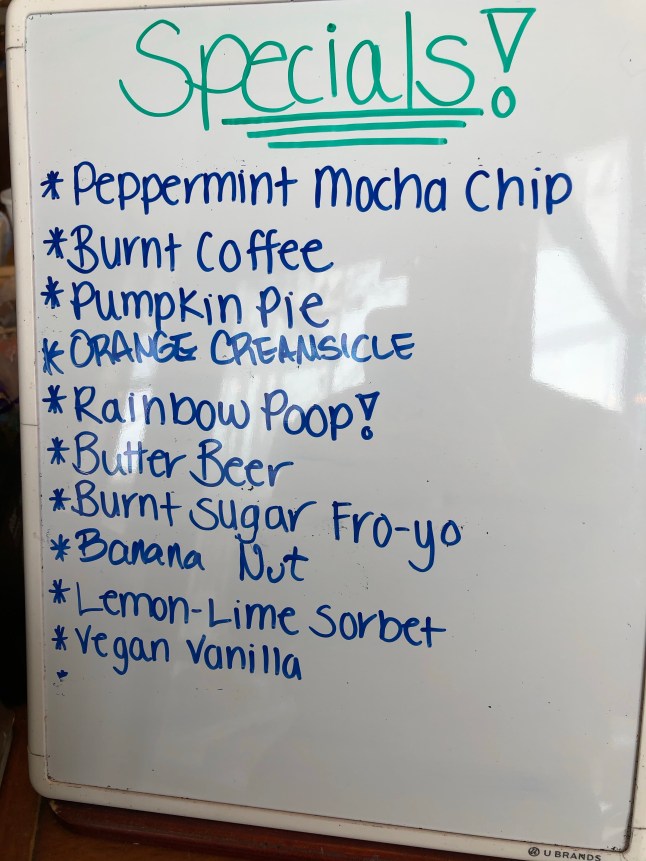 Specials!
* Peppermint Mocha Chip
* Burnt Coffee
* Pumpkin Pie
* ORANGE CREAMSICLE
* Rainbow Poop!
* Butter Beer
* Burnt Sugar Fro-yo
* Banana Nut
* Lemon-Lime Sorbet
* Vegan Vanilla
U BRANDS